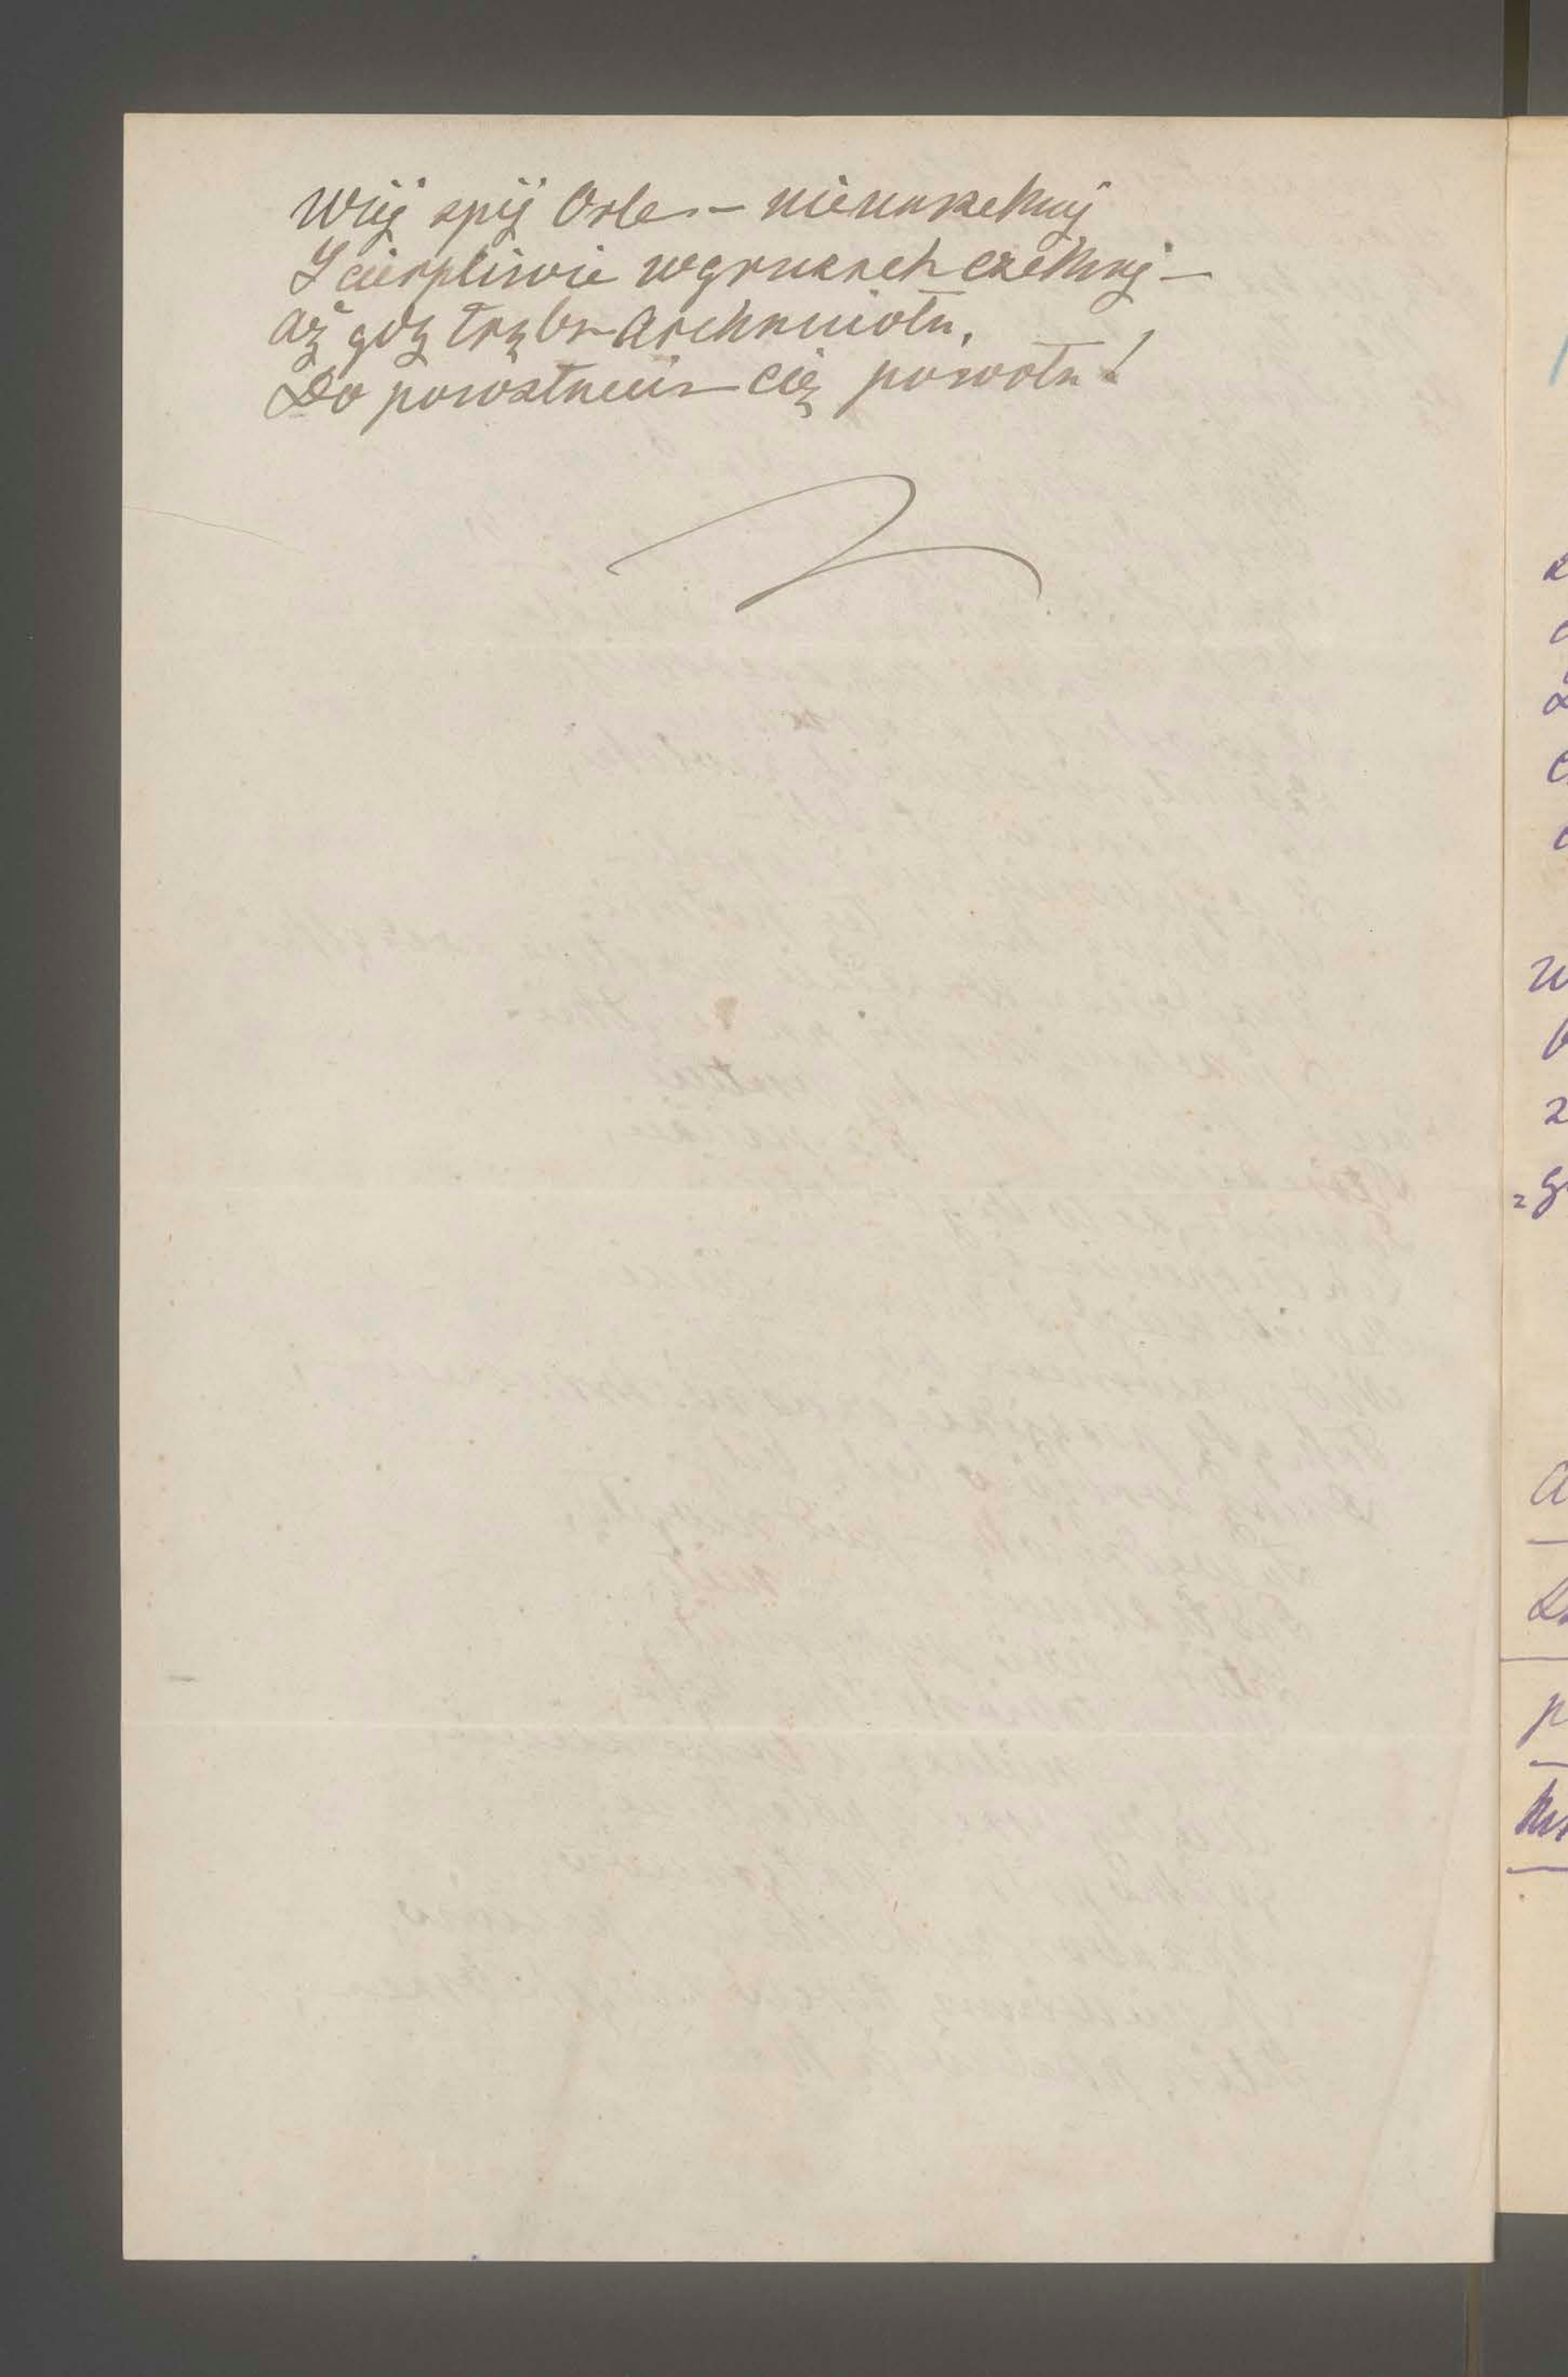 Więj spij Orle – nienarzekaj
I cierpliwie w gruzach czekaj –
Aż gdy trąba Archanioła,
Do powstania cię powoła!